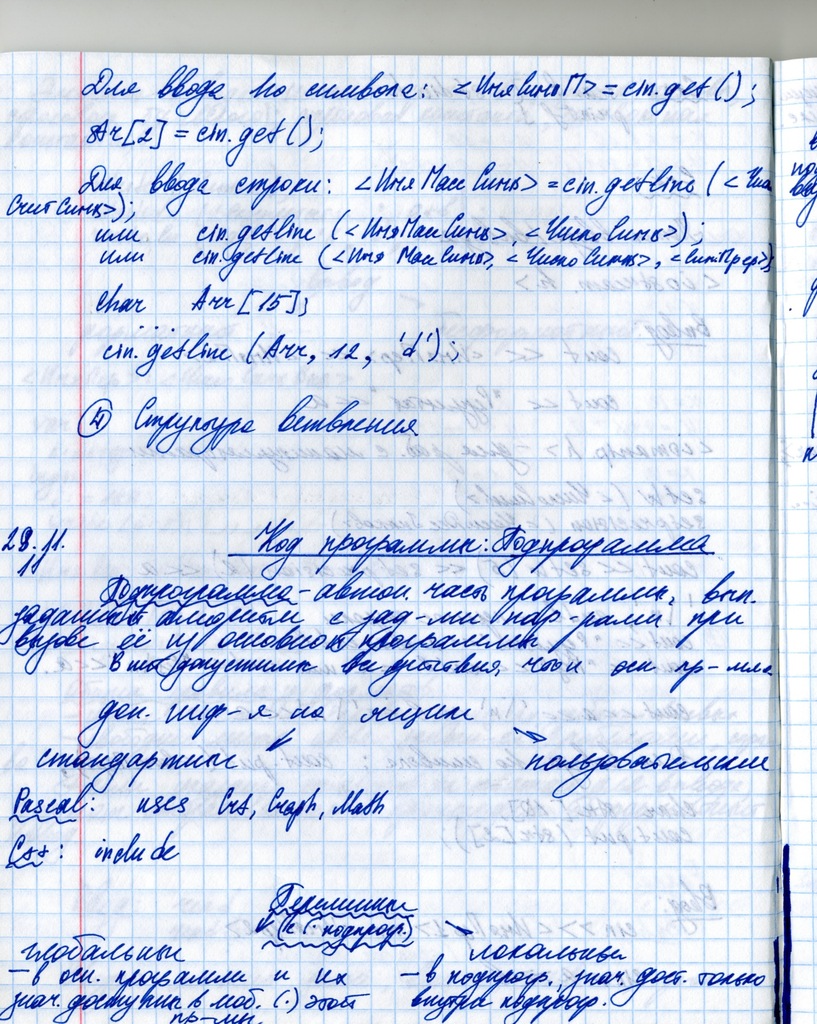 Для ввода по символа: <ИмяСимвП> = cin.get();
Arr[2] = cin.get();
Для ввода строки: <ИмяМассСимв> = cin.getline (<Чис
СчитСимв>);
или cin.getline (<ИмяМассСимв>, <ЧислоСимв>);
или cin.getline (<Имя МассСимв>, <ЧислоСимв>, <СимПрер>);
char Arr [15];
...
cin.getline (Arr, 12, 'd');
④ Структура ветвления
29.11.
11
Код программы: Подпрограмма
Подпрограмма - автон. часть программы, вып.
заданный алгоритм с зад-ми пар-рами при
вызове её из основной программы
В допустимы все действия, что и осн пр-мма
доп. инф-я по
стандартные пользовательские
Pascal: uses Crt, Graph, Math
C++: include
Переменные
(к (·) подпрогр.)
глобальные локальные
- в осн. программе и их - в подпрогр., знач. дост. только
знач. доступны в люб. (·) этой внутри подпрогр.
пр-мы.